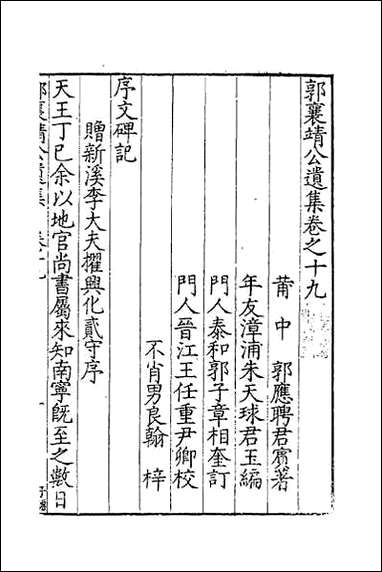 郭襄靖公遺集卷之十九
莆中　郭應聘君賓著
年友漳浦朱天球君玉編
門人泰和郭子章相奎訂
門人晉江王任重尹卿校
不肖男良翰　梓
序文碑記
贈新溪李大夫擢興化貳守序
天王丁巳余以地官尚書屬來知南寧既至之數日
郭襄靖公遺集　卷十九　一